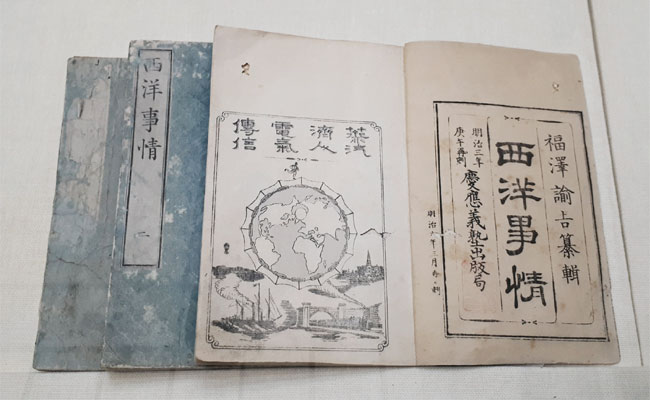 福澤諭吉纂輯
西洋事情
明治三年
庚午再刻
慶應義塾出版局
蒸汽
濟人
電氣
傳信
西洋事情
二